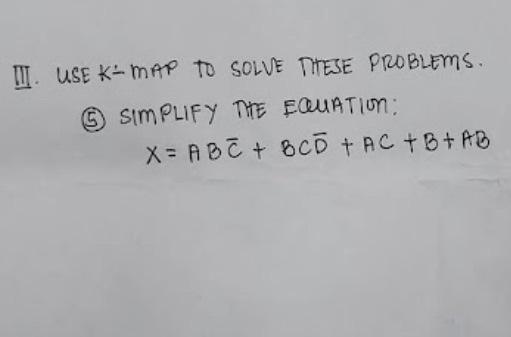 III. USE K-MAP TO SOLVE THESE PROBLEMS.
⑤ SIMPLIFY THE EQUATION:
X = ABC̅ + BCD̅ + AC + B + AB